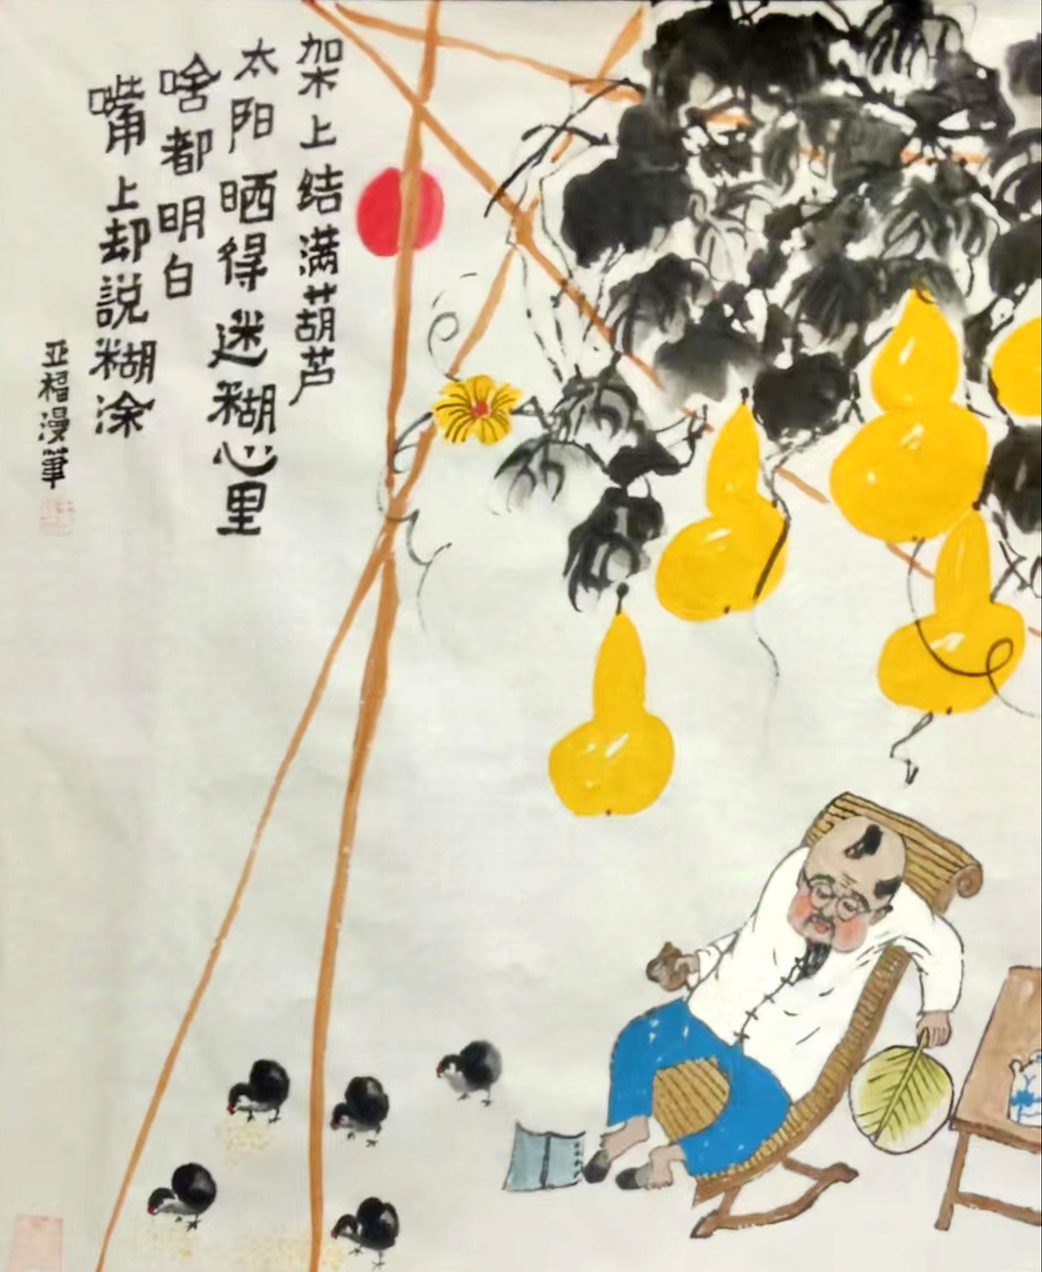 架上结满葫芦
太阳晒得迷糊心里
啥都明白
嘴上却説糊涂
亚福漫筆